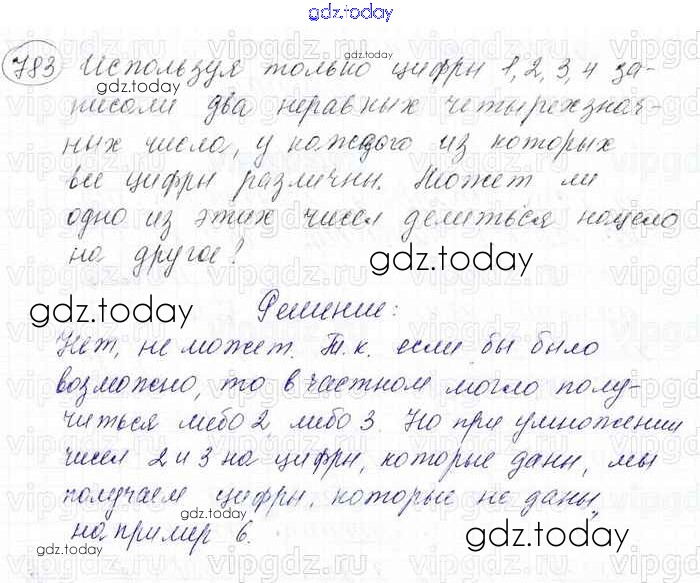 gdz.today
783 Используя только цифры 1, 2, 3, 4 за-
писали два неравных четырехзнач-
ных числа, у каждого из которых
все цифры различны. Может ли
одно из этих чисел делиться нацело
на другое?
gdz.today
gdz.today
Решение:
Нет, не может. Т.к. если бы было
возможно, то в частном могло полу-
читься либо 2, либо 3. Но при умножении
чисел 2 и 3 на цифры, которые даны, мы
получаем цифры, которые не даны,
например 6.
gdz.today
gdz.today